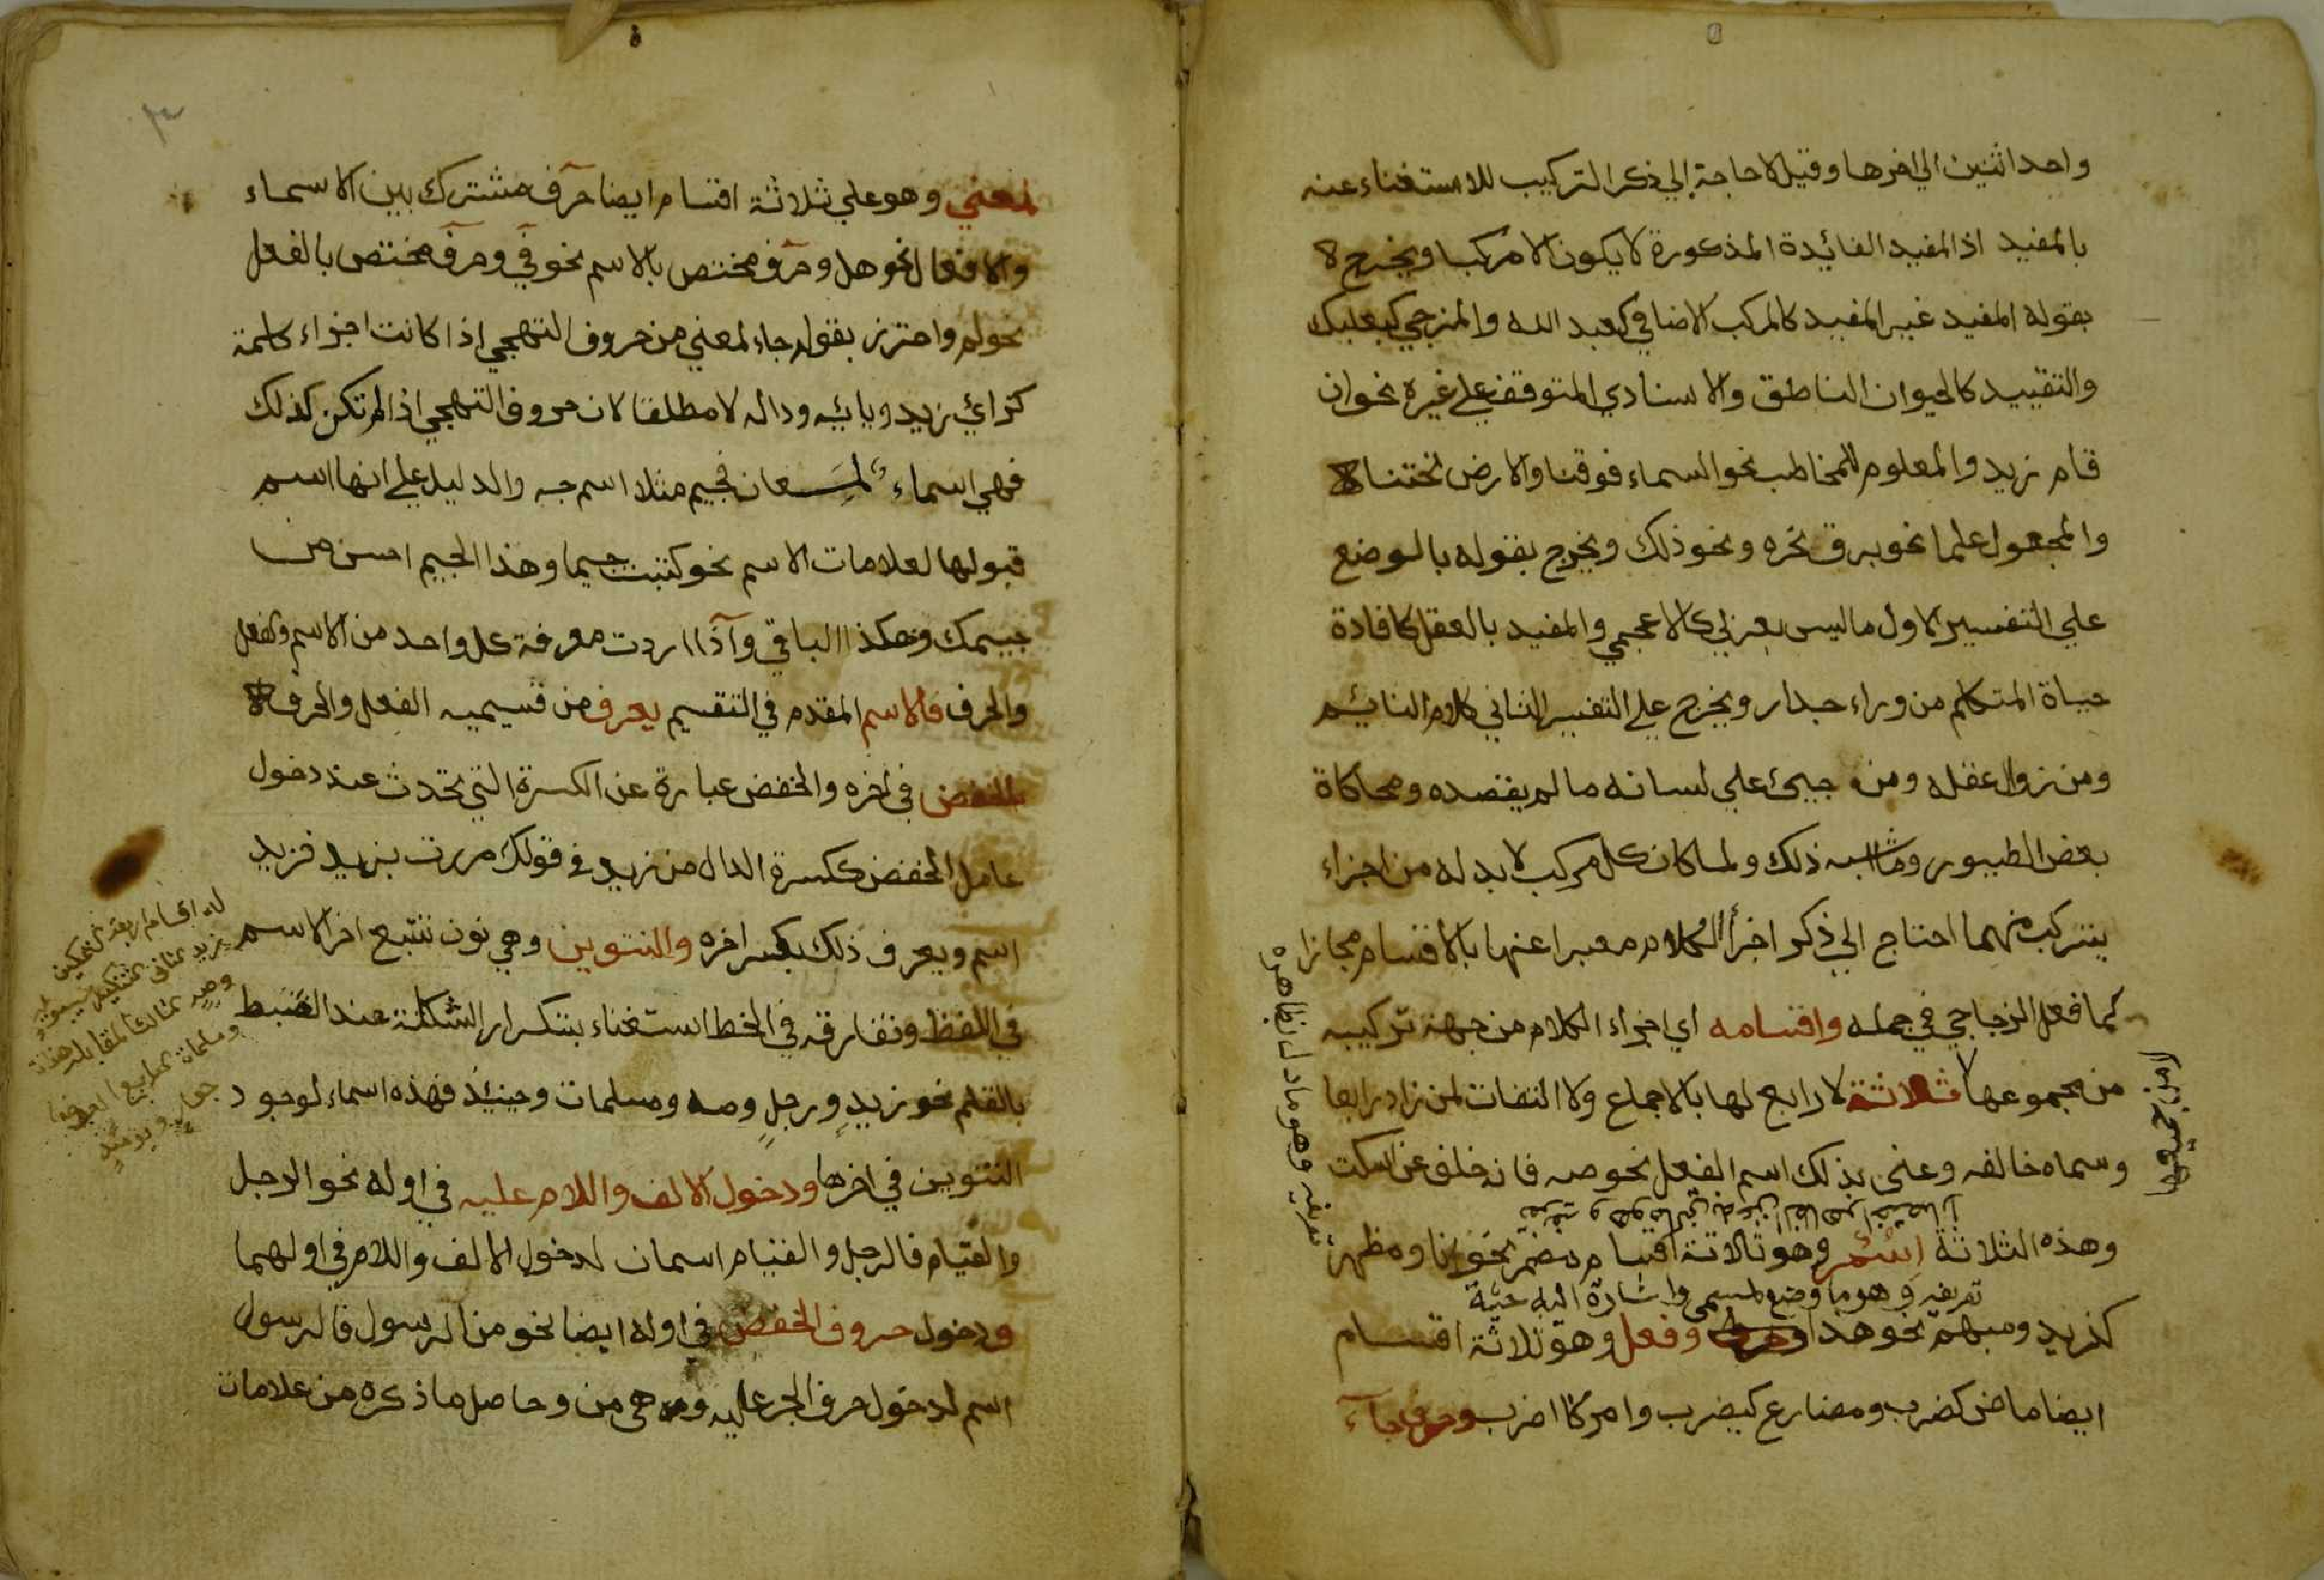 واحد اثنين الي اخرها وقيل لا حاجة الي ذكر التركيب للاستغناء عنه
بالمفيد اذ المفيد الفائدة المذكورة لا يكون الا مركبا ويخرج
بقوله المفيد غير المفيد كالمركب الاضافي كعبد الله والمزجي كبعلبك
والتقييد كالحيوان الناطق والاسنادي المتوقف علي غيره نحو ان
قام زيد والمعلوم للمخاطب نحو السماء فوقنا والارض تحتنا
والمجعول علما نحو برق نحره ونحو ذلك ويخرج بقوله بالوضع
علي التفسير الاول ما ليس بعربي كالاعجمي والمفيد بالعقل كافادة
حياة المتكلم من وراء جدار ويخرج علي التفسير الثاني كلام النائم
ومن زوال عقله ومن جيئ علي لسانه ما لم يقصده ومحاكاة
بعض الطيور وما اشبه ذلك ولما كان كل مركب لا بد له من اجزاء
يتركب منهما احتاج الي ذكر اجزأ الكلام معبرا عنها بالاقسام مجازا
كما فعل الزجاجي في جمله واقسامه اي اجزاء الكلام من جهة تركيبه
من مجموعها ثلاثة لا رابع لها بالاجماع ولا التفات لمن زاد رابعا
لا من جميعها
وسماه خالفه وعني بذلك اسم الفعل نحو صه فانه خلف عن اسكت
وهذه الثلاثة اسم وهو ثلاثة اقسام مضمر نحو انا ومظهر
تعريفه وهو ما دل بظاهره
تعريفه وهو ما وضع لمسمى واشارة اليه
كزيد ومبهم نحو هذا وفعل وهو ثلاثة اقسام
ايضا ماض كضرب ومضارع كيضرب وامر كاضرب وحرف جاء
٣
لمعني وهو علي ثلاثة اقسام ايضا حرف مشترك بين الاسماء
والافعال نحو هل وحرف مختص بالاسم نحو في وحرف مختص بالفعل
نحو لم واحترز بقوله جاء لمعني من حروف التهجي اذا كانت اجزاء كلمة
كزائ زيد ويائه وداله لا مطلقا لان حروف التهجي اذا لم تكن كذلك
فهي اسماء لمعان فجيم مثلا اسم جه والدليل علي انها اسم
قبولها لعلامات الاسم نحو كتبت جيما وهذا الجيم احسن من
جيمك وهكذا الباقي واذا اردت معرفة كل واحد من الاسم والفعل
والحرف فالاسم المقدم في التقسيم يعرف من قسيميه الفعل والحرف
بالخفض في اخره والخفض عبارة عن الكسرة التي تحدث عند دخول
عامل الخفض ككسرة الدال من زيد في قولك مررت بزيد فزيد
اسم ويعرف ذلك بكسر اخره والتنوين وهي نون تتبع اخر الاسم
في اللفظ وتفارقه في الخط استغناء بتكرار الشكلة عند الضبط
بالقلم نحو زيدٍ ورجلٍ وصه ومسلمات وحينئذ فهذه اسماء لوجود
التنوين في اخرها ودخول الالف واللام عليه في اوله نحو الرجل
والقيام فالرجل والقيام اسمان لدخول الالف واللام في اولهما
ودخول حروف الخفض في اوله ايضا نحو من الرسول فالرسول
اسم لدخول حرف الجر عليه وهي من وحاصل ما ذكره من علامات